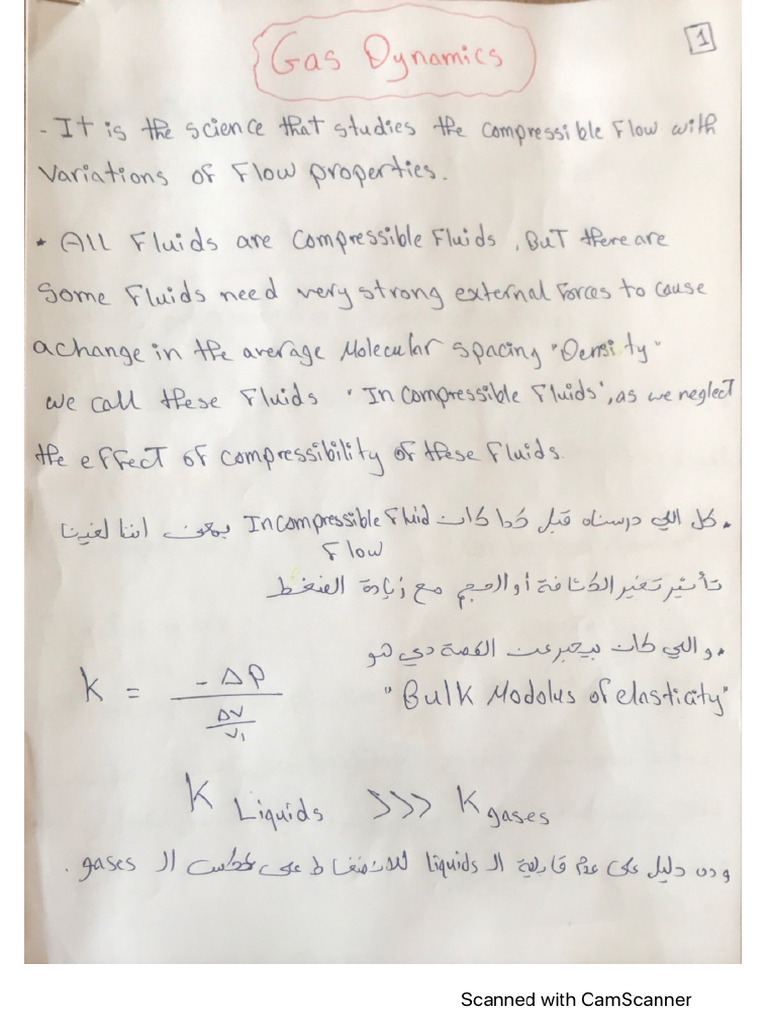 Gas Dynamics
1
- It is the science that studies the compressible Flow with
Variations of Flow properties.
* All Fluids are Compressible Fluids, But there are
Some Fluids need very strong external Forces to cause
a change in the average Molecular spacing "Density"
we call these Fluids "Incompressible Fluids", as we neglect
the effect of compressibility of these Fluids.
• كل اللي درسناه قبل كدا كان Incompressible Fluid بمعنى اننا لغينا
Flow
تأثير تغير الكثافة أو الحجم مع زيادة الضغط
• واللي كان بيعبر عن القصة دي هو
"Bulk Modolus of elasticity"
K = -ΔP / (ΔV / V₁)
K Liquids >>> K gases
وده دليل على عدم قابلية ال liquids للانضغاط على عكس ال gases .
Scanned with CamScanner